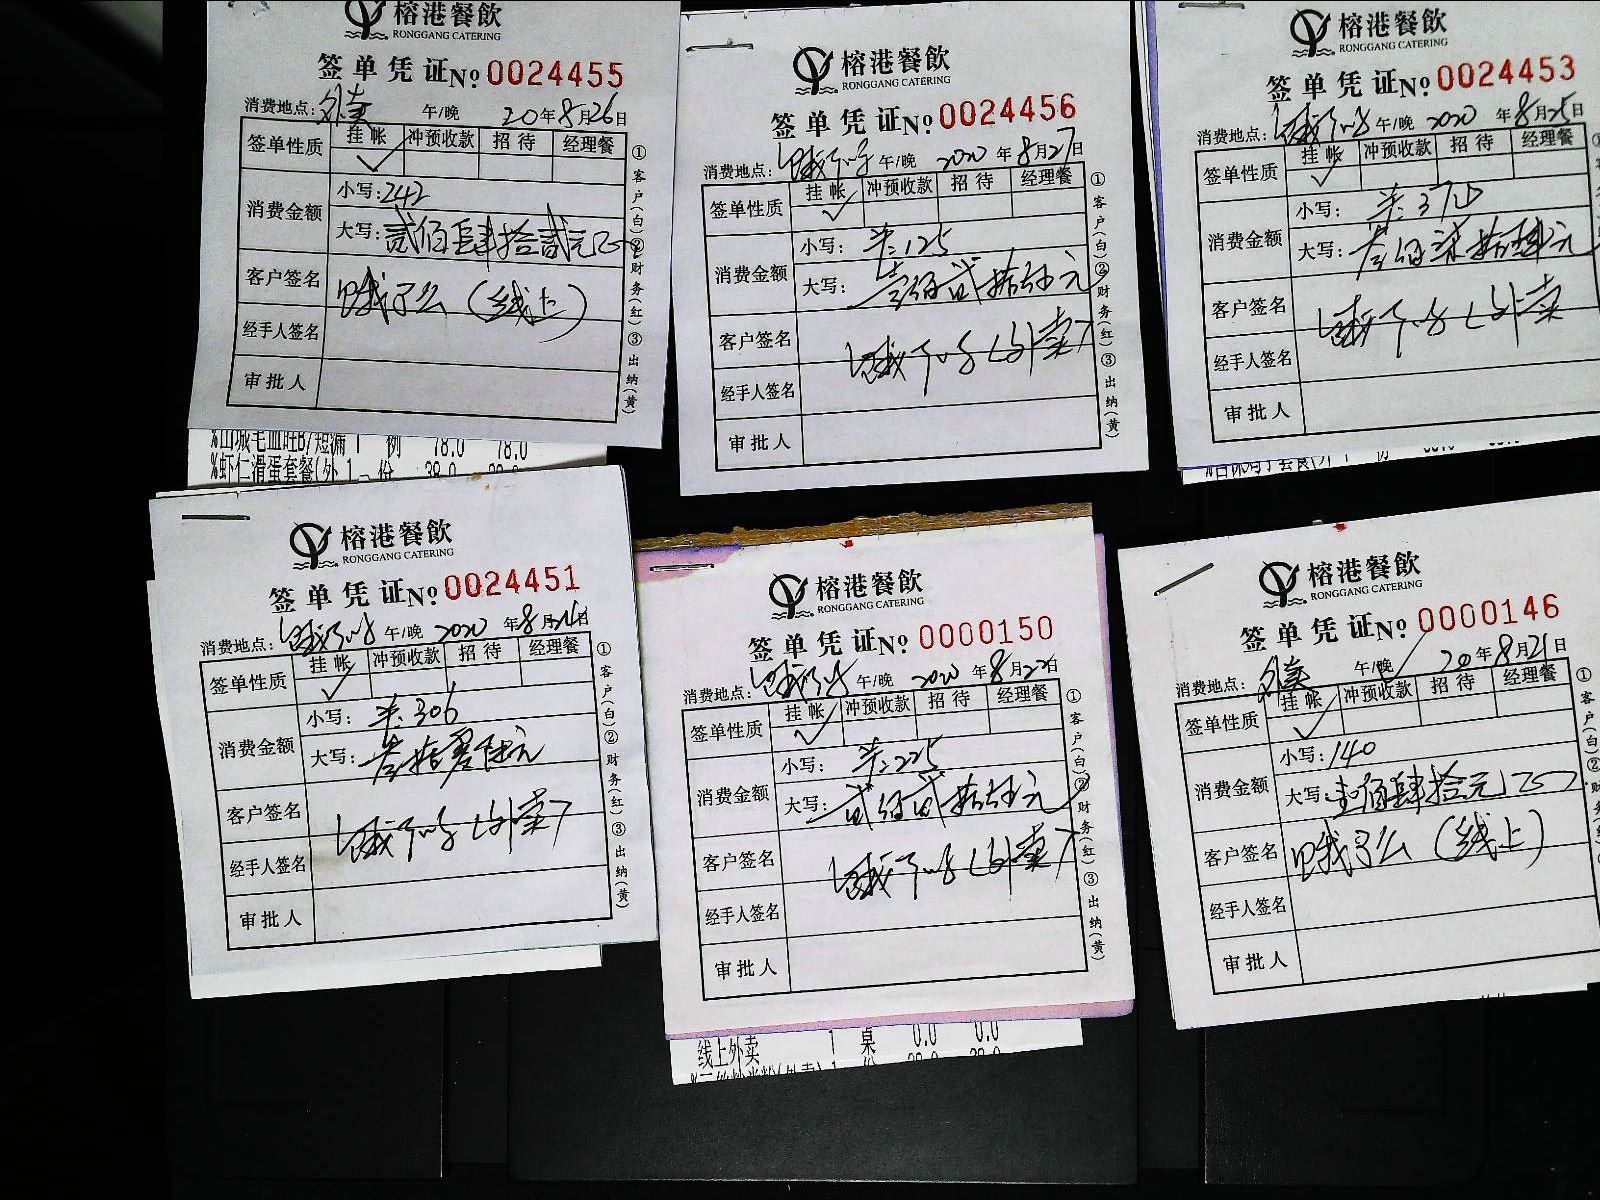 榕港餐飲
RONGGANG CATERING
签单凭证 No 0024455
消费地点: 外卖 午/晚 20年8月26日
签单性质 挂帐 冲预收款 招待 经理餐
✓
消费金额 小写: 242
大写: 贰佰肆拾贰元
客户签名 饿了么(线上)
经手人签名
审批人
①客户(白)②财务(红)③出纳(黄)
%山城毛血旺B/短漏 1 例 78.0 78.0
%虾仁滑蛋套餐(外 1 份 38.0
榕港餐飲
RONGGANG CATERING
签单凭证 No 0024456
消费地点: 饿了么 午/晚 2020年8月27日
签单性质 挂帐 冲预收款 招待 经理餐
✓
消费金额 小写: 125
大写: 壹佰贰拾伍元
客户签名 饿了么(外卖)
经手人签名
审批人
①客户(白)②财务(红)③出纳(黄)
榕港餐飲
RONGGANG CATERING
签单凭证 No 0024453
消费地点: 饿了么 午/晚 2020年8月25日
签单性质 挂帐 冲预收款 招待 经理餐
✓
消费金额 小写:
大写: 叁佰柒拾元
客户签名 饿了么(外卖
经手人签名
审批人
榕港餐飲
RONGGANG CATERING
签单凭证 No 0024451
消费地点: 饿了么 午/晚 2020年8月24日
签单性质 挂帐 冲预收款 招待 经理餐
✓
消费金额 小写: 306
大写: 叁佰零陆元
客户签名 饿了么(外卖)
经手人签名
审批人
①客户(白)②财务(红)③出纳(黄)
榕港餐飲
RONGGANG CATERING
签单凭证 No 0000150
消费地点: 饿了么 午/晚 2020年8月22日
签单性质 挂帐 冲预收款 招待 经理餐
✓
消费金额 小写: 225
大写: 贰佰贰拾伍元
客户签名 饿了么(外卖)
经手人签名
审批人
①客户(白)②财务(红)③出纳(黄)
线上外卖 1 桌 0.0 0.0
榕港餐飲
RONGGANG CATERING
签单凭证 No 0000146
消费地点: 外卖 午/晚 20年8月21日
签单性质 挂帐 冲预收款 招待 经理餐
✓
消费金额 小写: 140
大写: 壹佰肆拾元
客户签名 饿了么(线上)
经手人签名
审批人
①客户(白)②财务(红)